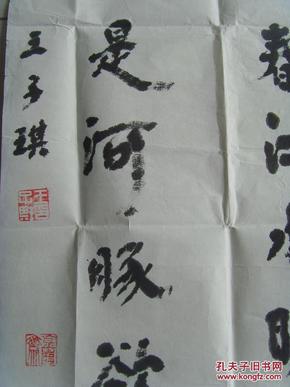 春江水暖
是河豚欲
王子琪
孔夫子旧书网